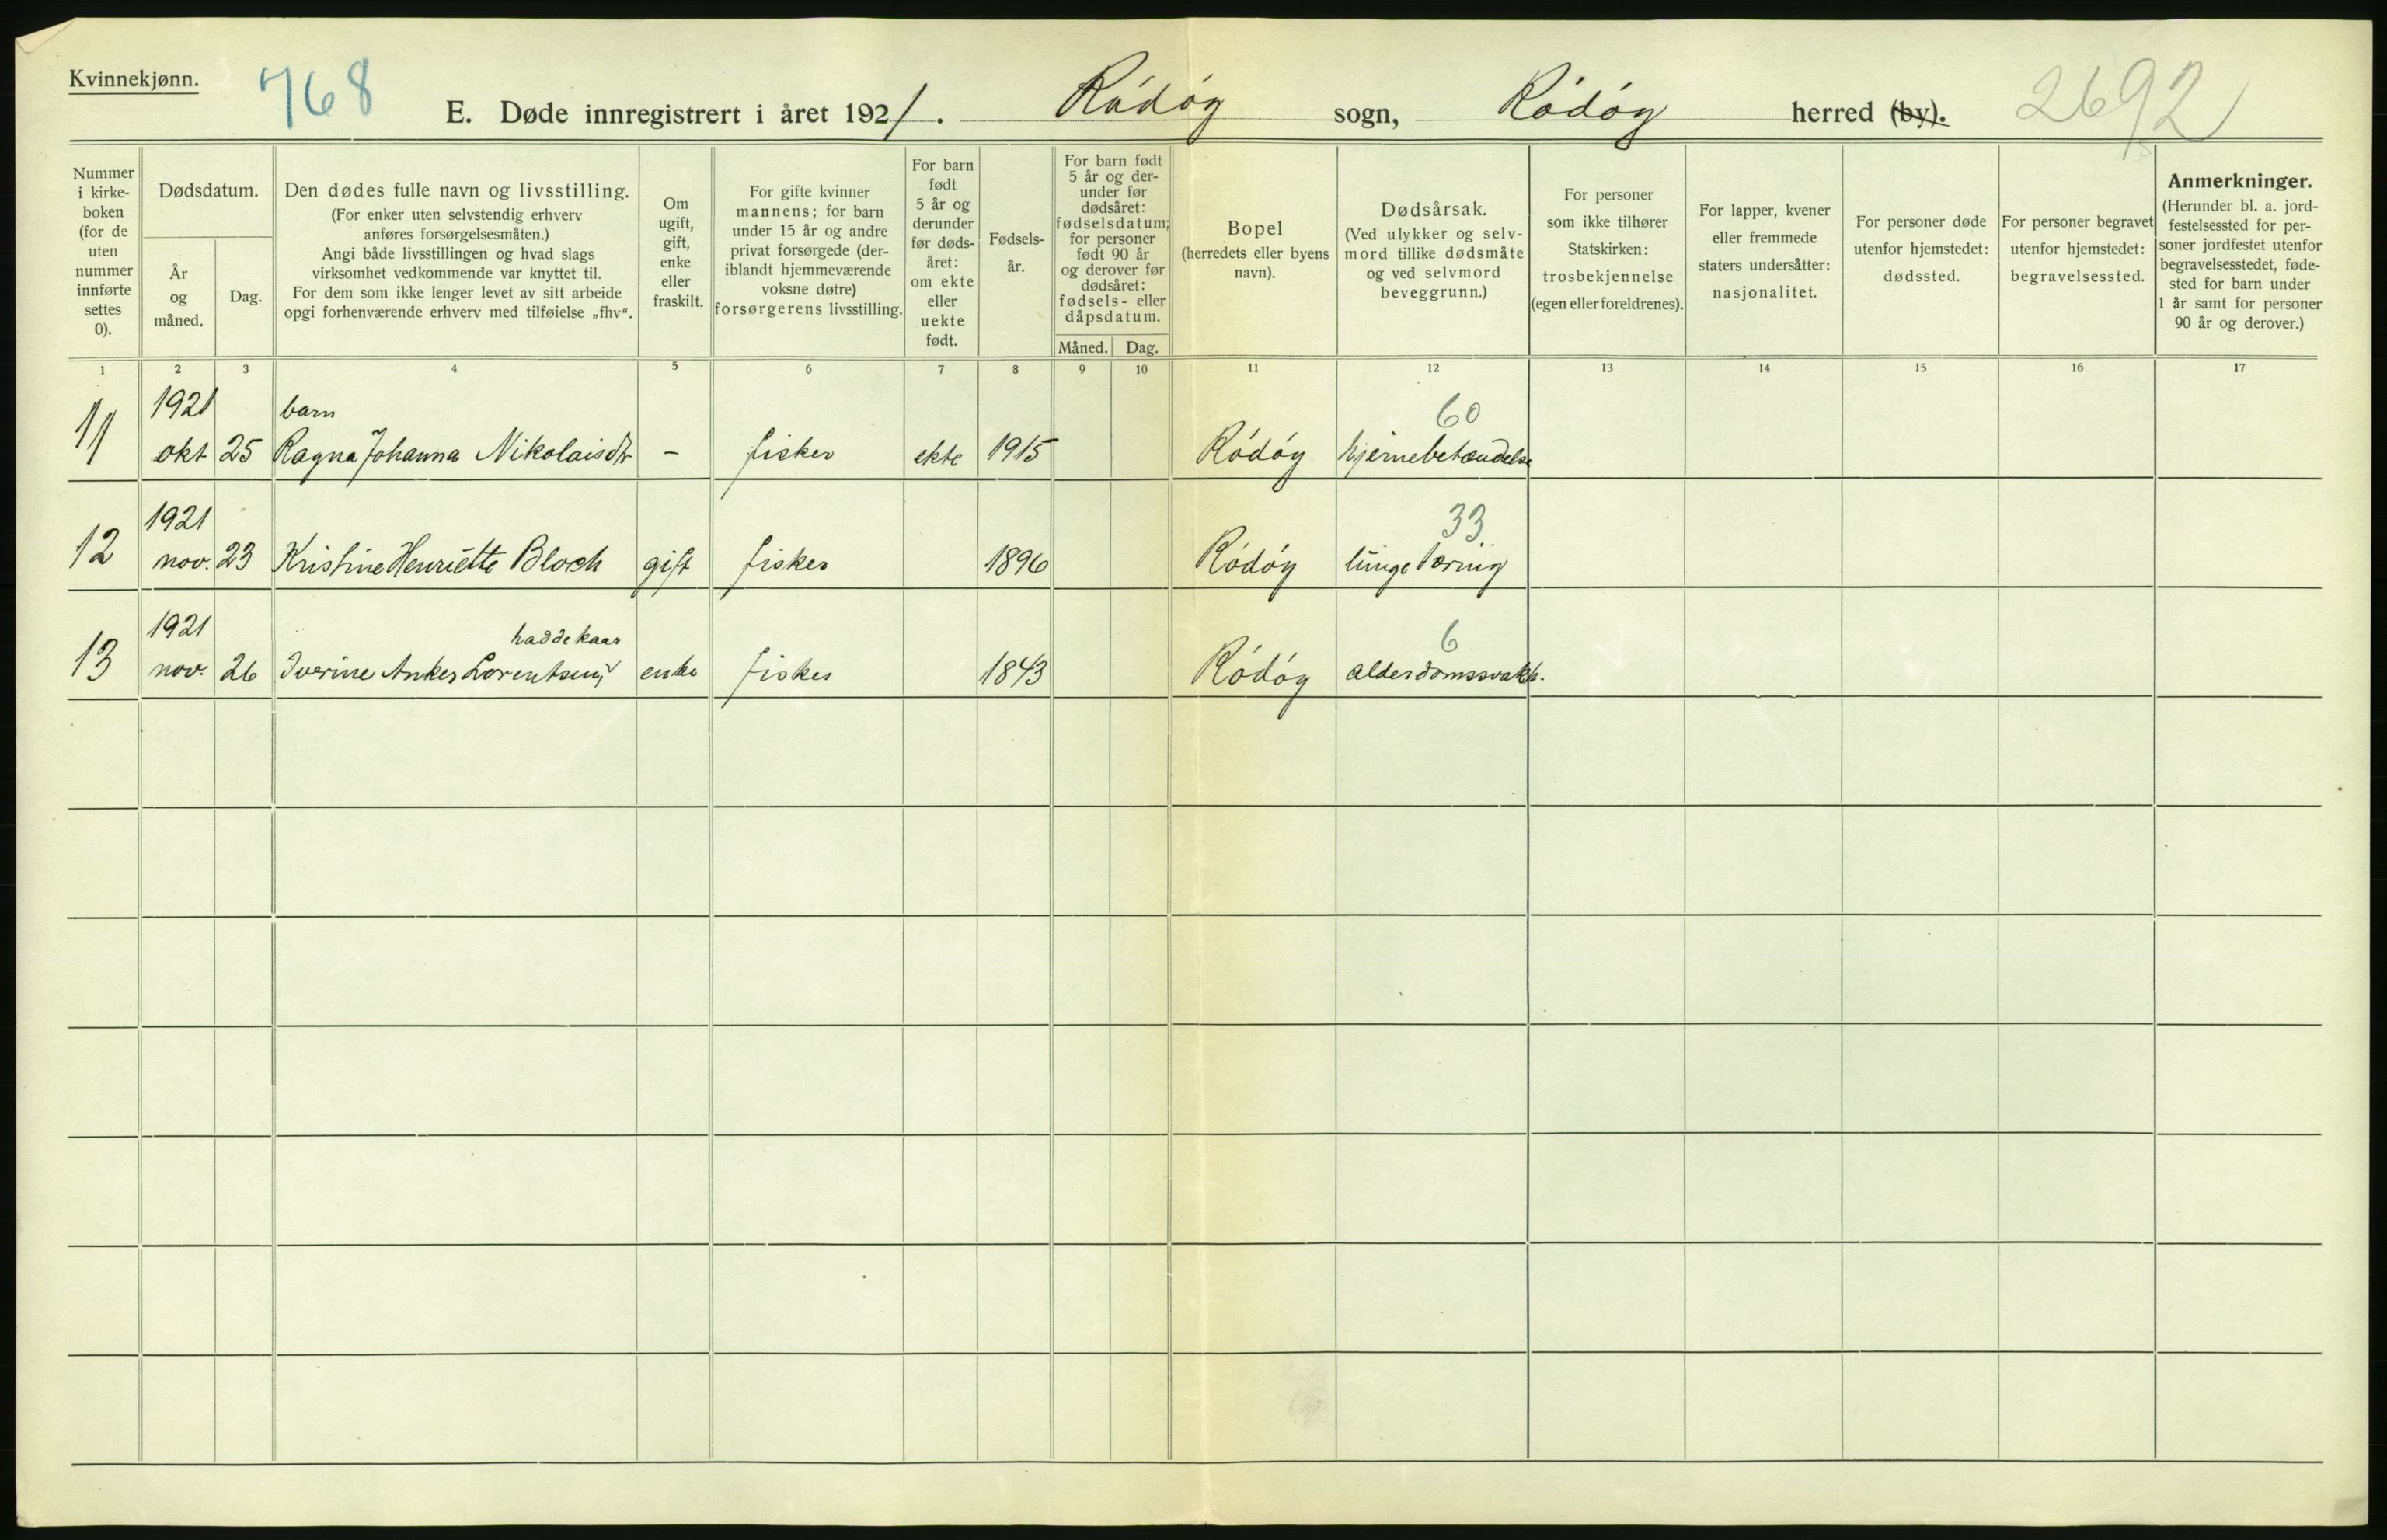 Kvinnekjønn.
768
E. Døde innregistrert i året 1921. Rödöy sogn, Rödöy herred (by).
2692
Nummer i kirke-boken (for de uten nummer innførte settes 0).
Dødsdatum.
År og måned.
Dag.
Den dødes fulle navn og livsstilling.
(For enker uten selvstendig erhverv
anføres forsørgelsesmåten.)
Angi både livsstillingen og hvad slags
virksomhet vedkommende var knyttet til.
For dem som ikke lenger levet av sitt arbeide
opgi forhenværende erhverv med tilføielse „fhv“.
Om ugift, gift, enke eller fraskilt.
For gifte kvinner
mannens; for barn
under 15 år og andre
privat forsørgede (der-
iblandt hjemmeværende
voksne døtre)
forsørgerens livsstilling.
For barn født 5 år og derunder før døds-året: om ekte eller uekte født.
Fødsels-år.
For barn født
5 år og der-
under før
dødsåret:
fødselsdatum;
for personer
født 90 år
og derover før
dødsåret:
fødsels- eller
dåpsdatum.
Måned. Dag.
Bopel
(herredets eller byens
navn).
Dødsårsak.
(Ved ulykker og selv-
mord tillike dødsmåte
og ved selvmord
beveggrunn.)
For personer
som ikke tilhører
Statskirken:
trosbekjennelse
(egen eller foreldrenes).
For lapper, kvener
eller fremmede
staters undersåtter:
nasjonalitet.
For personer døde
utenfor hjemstedet:
dødssted.
For personer begravet
utenfor hjemstedet:
begravelsessted.
Anmerkninger.
(Herunder bl. a. jord-
festelsessted for per-
soner jordfestet utenfor
begravelsesstedet, føde-
sted for barn under
1 år samt for personer
90 år og derover.)
1 2 3 4 5 6 7 8 9 10 11 12 13 14 15 16 17
1921 barn 60
11 okt 25 Ragna Johanna Nikolaisdtr - fisker ekte 1915 Rödöy hjernebetændelse
1921 33
12 nov. 23 Kristine Henriette Bloch gift fisker 1896 Rödöy lungetæring
1921 hadde kaar 6
13 nov. 26 Iverine Anker Lorentsen, enke fisker 1843 Rödöy alderdomssvakh.